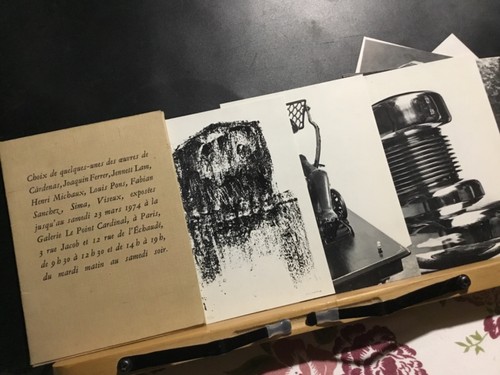 Choix de quelques-unes des œuvres de
Cárdenas, Joaquin Ferrer, Jennett Lam,
Henri Michaux, Louis Pons, Fabian
Sanchez, Sima, Viseux, exposées
jusqu'au samedi 23 mars 1974 à la
Galerie Le Point Cardinal, à Paris,
3 rue Jacob et 12 rue de l'Échaudé,
de 9 h 30 à 12 h 30 et de 14 h à 19 h,
du mardi matin au samedi soir.